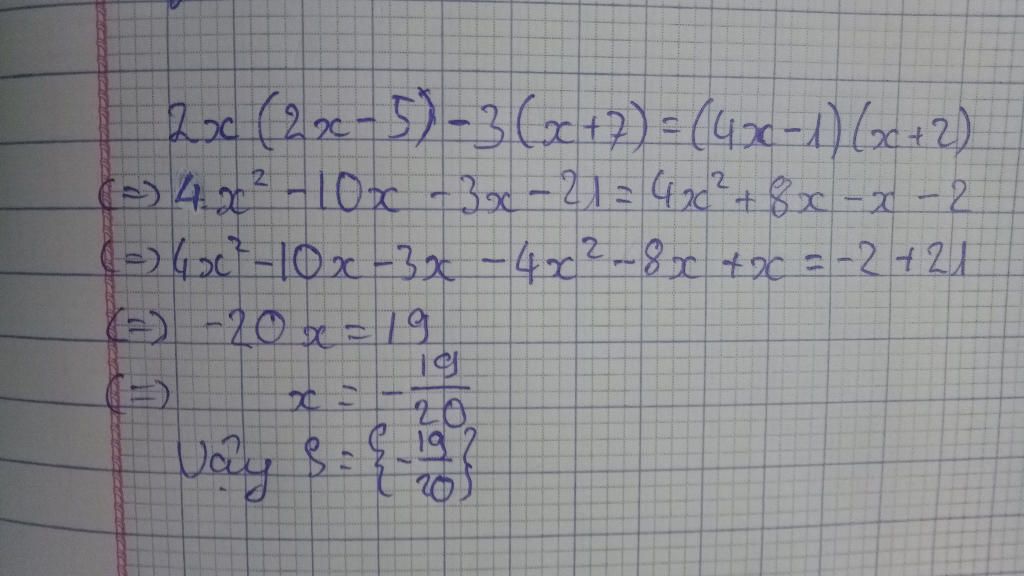 2x(2x-5)-3(x+7)=(4x-1)(x+2)
(=) 4x²-10x-3x-21=4x²+8x-x-2
(=) 4x²-10x-3x-4x²-8x+x=-2+21
(=) -20x=19
(=) x=-19/20
Vậy S={-19/20}